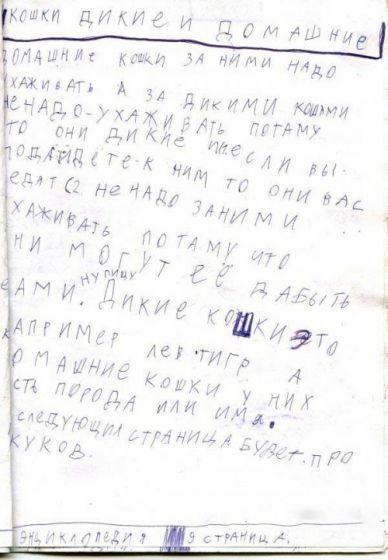 КОШКИ ДИКИЕ И ДОМАШНИЕ
ДОМАШНИЕ КОШКИ ЗА НИМИ НАДО
ХАЖИВАТЬ А ЗА ДИКИМИ КОШКАМИ
НЕ НАДО-УХАЖИВАТЬ ПОТАМУ
ТО ОНИ ДИКИЕ ЕСЛИ ВЫ-
ПОДАЙДЁТЕ-К НИМ ТО ОНИ ВАС
ЕДАТ НЕ НАДО ЗА НИМИ
ХАЖИВАТЬ ПОТАМУ ЧТО
НИ МОГУТ ЕЁ ДАБЫТЬ
НУ ПИЩУ
АМИ. ДИКИЕ КОШКИ ЭТО
АПРИМЕР ЛЕВ ТИГР А
ОМАШНИЕ КОШКИ У НИХ
СТЬ ПОРОДА ИЛИ ИМЯ.
СЛЕДУЮЩИЙ СТРАНИЦА БУДЕТ. ПРО
КУКОВ.
ЭНЦИКЛОПЕДИЯ 9 СТРАНИЦА.